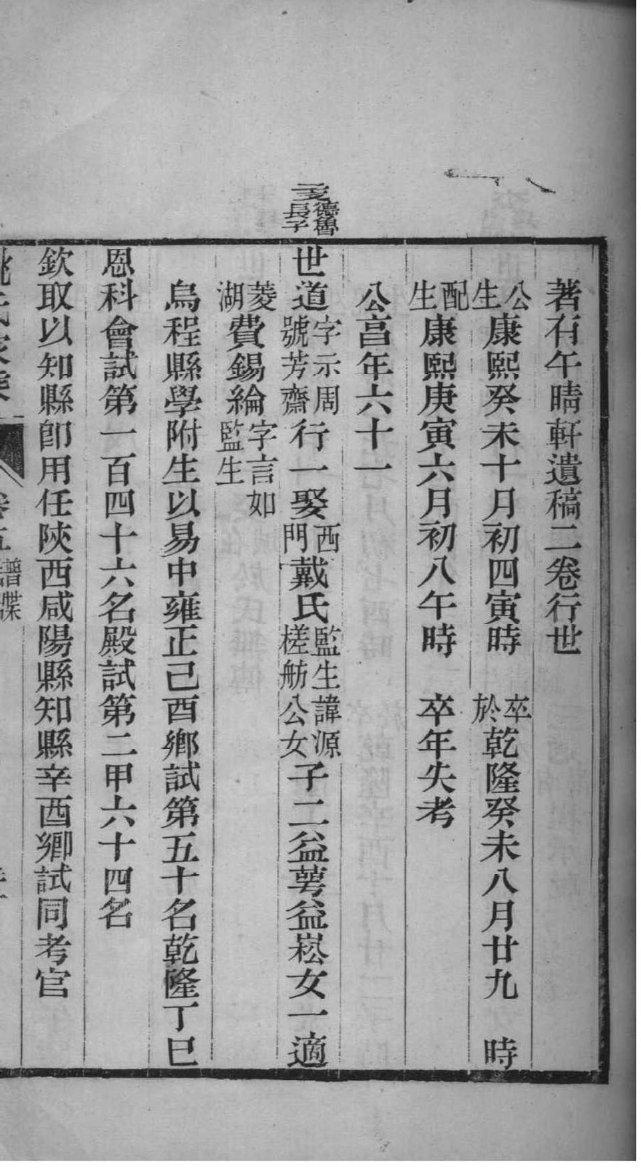 著有午晴軒遺稿二卷行世
公生康熙癸未十月初四寅時 卒於乾隆癸未八月廿九 時
配生康熙庚寅六月初八午時 卒年失考
公亯年六十一
德魯長子
世道字示周號芳齋行一娶西門戴氏監生諱源槎舫公女子二益萼益崧女一適
菱湖費錫綸字言如監生
烏程縣學附生以易中雍正己酉鄉試第五十名乾隆丁巳
恩科會試第一百四十六名殿試第二甲六十四名
欽取以知縣卽用任陝西咸陽縣知縣辛酉鄉試同考官
姚氏家乘 卷五 譜牒